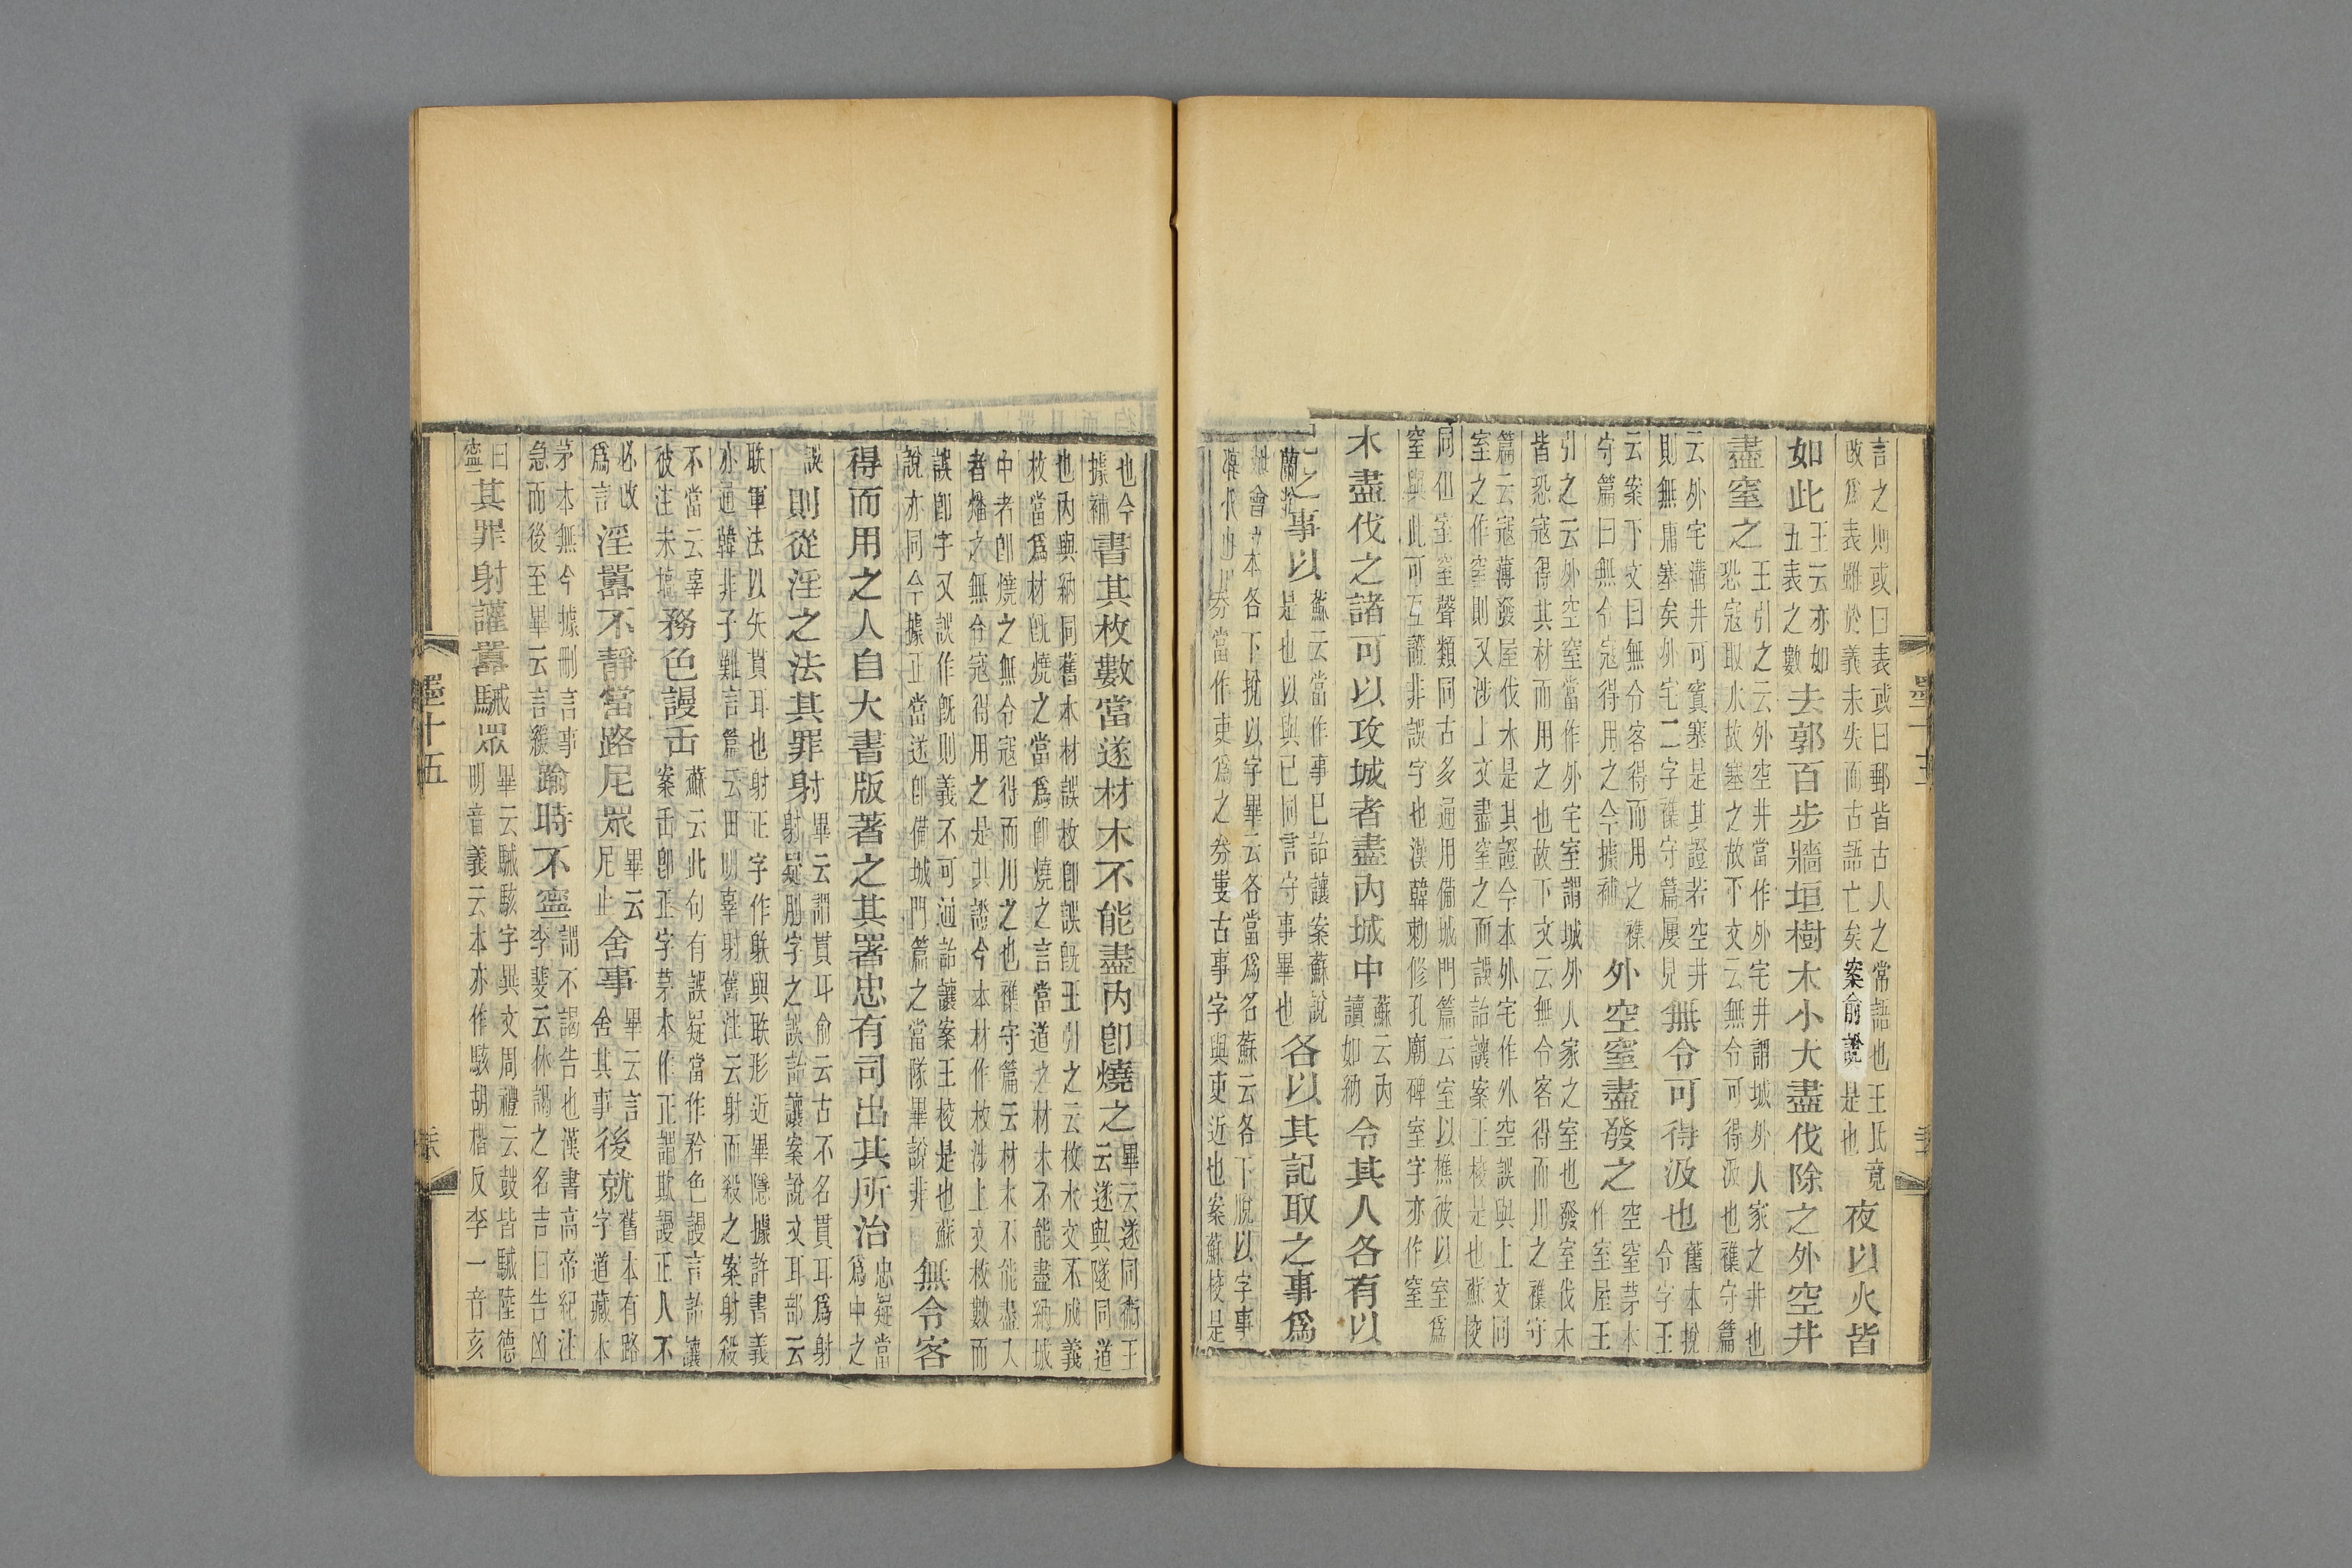 言之則或曰表或曰郵皆古人之常語也王氏竟
改爲表雖於義未失而古語亡矣案俞說是也
夜以火皆
如此王云亦如五表之數去郭百步牆垣樹木小大盡伐除之外空井
盡窒之王引之云外空井當作外宅井謂城外人家之井也
恐寇取水故塞之故下文云無令可得汲也襍守篇
云外宅溝井可窴塞是其證若空井
則無庸塞矣外宅二字襍守篇屢見
無令可得汲也舊本挩令字王
云案下文曰無令客得而用之襍
守篇曰無令寇得用之今據補
外空窒盡發之空窒茅本作室屋王
引之云外空窒當作外宅室謂城外人家之室也發室伐木
皆恐寇得其材而用之也故下文云無令客得而用之襍守
篇云寇薄發屋伐木是其證今本外宅作外空誤與上文同
室之作窒則又涉上文盡窒之而誤詒讓案王校是也蘇校
同但室窒聲類同古多通用備城門篇云室以樵彼以室爲
窒與此可互證非誤字也漢韓勑修孔廟碑室字亦作窒
木盡伐之諸可以攻城者盡內城中蘇云內讀如納令其人各有以
記之事以蘇云當作事已詒讓案蘇說
是也以與已同言守事畢也
各以其記取之事爲
本各下挩以字畢云各當爲名蘇云各下脫以字事
券當作吏爲之券蓋古事字與吏近也案蘇校是
也今
據補
書其枚數當遂材木不能盡內卽燒之畢云遂同術王
云遂與隧同道
也內與納同舊本材誤枚卽誤旣王引之云枚木文不成義
枚當爲材旣燒之當爲卽燒之言當道之材木不能盡納城
中者卽燒之無令寇得而用之也襍守篇云材木不能盡入
者燔之無令寇得用之是其證今本材作枚涉上文枚數而
誤卽字又誤作旣則義不可通詒讓案王校是也蘇
說亦同今據正當遂卽備城門篇之當隊畢說非
無令客
得而用之人自大書版著之其署忠有司出其所治忠疑當
爲中之
誤
則從淫之法其罪射畢云謂貫耳俞云古不名貫耳爲射
射疑刵字之誤詒讓案說文耳部云
联軍法以矢貫耳也射正字作䠶與联形近畢隱據許書義
亦通韓非子難言篇云田明辜射舊注云射而殺之案射殺
不當云辜
彼注未塙
務色謾𠙺蘇云此句有誤疑當作矜色謾言詒讓
案𠙺卽正字茅本作正謂欺謾正人不
必改
爲言
淫囂不靜當路尼眾畢云
尼止
舍事畢云言
舍其事
後就舊本有路
字道藏本
茅本無今據刪言事
急而後至畢云言緩
踰時不寧謂不謁告也漢書高帝紀注
李斐云休謁之名吉曰告凶
曰
寧
其罪射讙囂駴眾畢云駴駭字異文周禮云鼓皆駴陸德
明音義云本亦作駭胡楷反李一音亥
墨十五